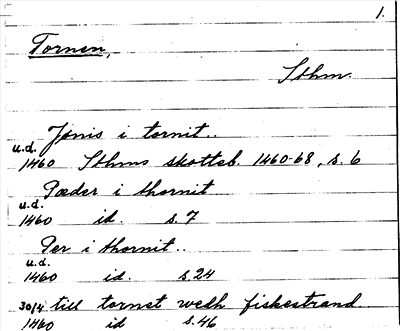 1.
Tornen,
Sthm.
Jönis i tornit..
u.d.
1460 Sthms skotteb. 1460-68, s. 6
Pæder i thornit
u.d.
1460 id. s. 7
Per i thornit..
u.d.
1460 id. s. 24
30/4 till tornet wedh fiskestrand
1460 id s. 46